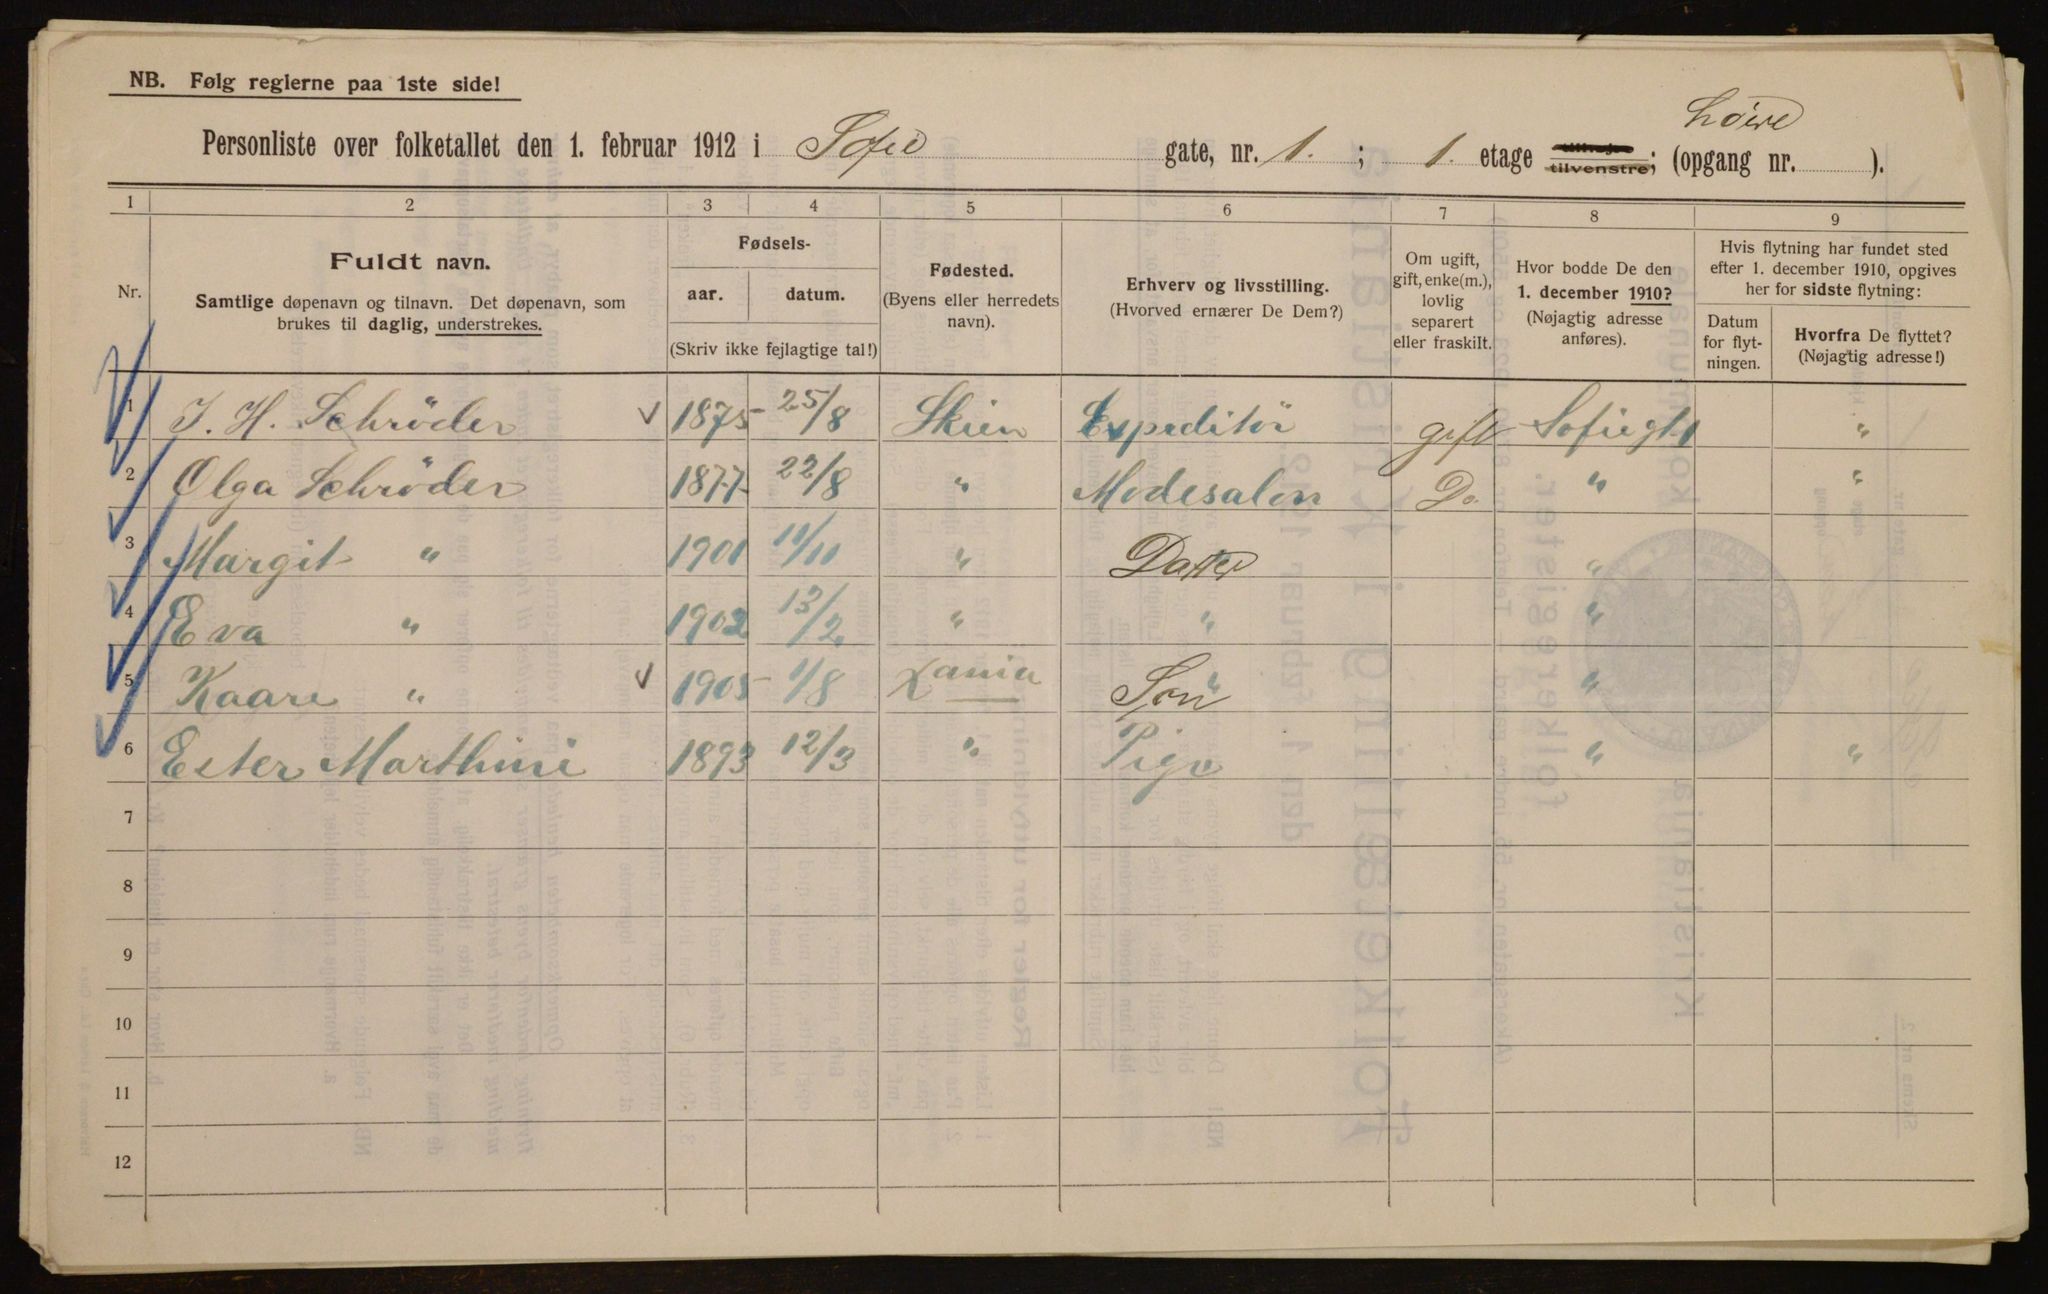 NB. Følg reglerne paa 1ste side!
Løire
Personliste over folketallet den 1. februar 1912 i Sofie gate, nr. 1. ; 1. etage tilvenstre; (opgang nr. ).
1 2 3 4 5 6 7 8 9
Nr.
Fuldt navn.
Samtlige døpenavn og tilnavn. Det døpenavn, som
brukes til daglig, understrekes.
Fødsels-
aar. datum.
(Skriv ikke fejlagtige tal!)
Fødested.
(Byens eller herredets
navn).
Erhverv og livsstilling.
(Hvorved ernærer De Dem?)
Om ugift,
gift, enke(m.),
lovlig
separert
eller fraskilt.
Hvor bodde De den
1. december 1910?
(Nøjagtig adresse
anføres).
Hvis flytning har fundet sted
efter 1. december 1910, opgives
her for sidste flytning:
Datum
for flyt-
ningen.
Hvorfra De flyttet?
(Nøjagtig adresse!)
1 J. H. Schrøder 1875 25/8 Skien Expeditör gift Sofiegt 1 "
2 Olga Schrøder 1877 22/8 " Modesalon Do. " "
3 Margit " 1901 11/11 " Datter "
4 Eva " 1902 13/2 " " "
5 Kaare " 1905 1/8 Xania Søn "
6 Ester Marthini 1893 12/3 " Pige " "
7
8
9
10
11
12